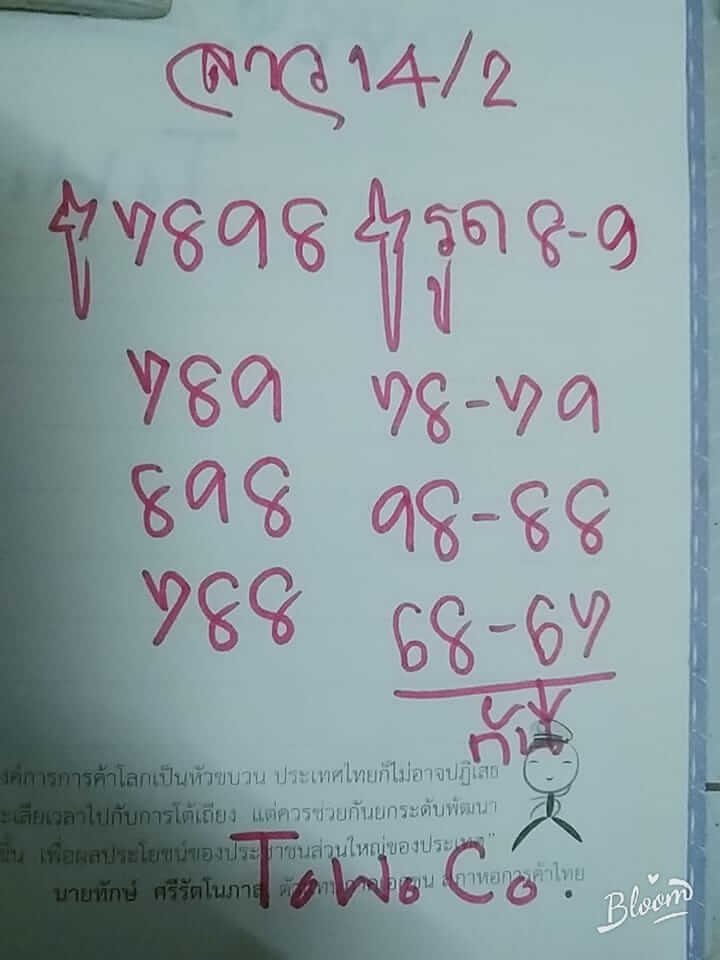 ลาว 14/2
7898 รูด 8-9
789 78-79
898 98-88
788 68-67
กัน
องค์การการค้าโลกเป็นหัวขบวน ประเทศไทยก็ไม่อาจปฏิเสธ
ะเสียเวลาไปกับการโต้เถียง แต่ควรช่วยกันยกระดับพัฒนา
ขึ้น เพื่อผลประโยชน์ของประชาชนส่วนใหญ่ของประเทศ"
นายทักษ์ ศรีรัตโนภาส สภาหอการค้าไทย
ToWo Co.
Bloom